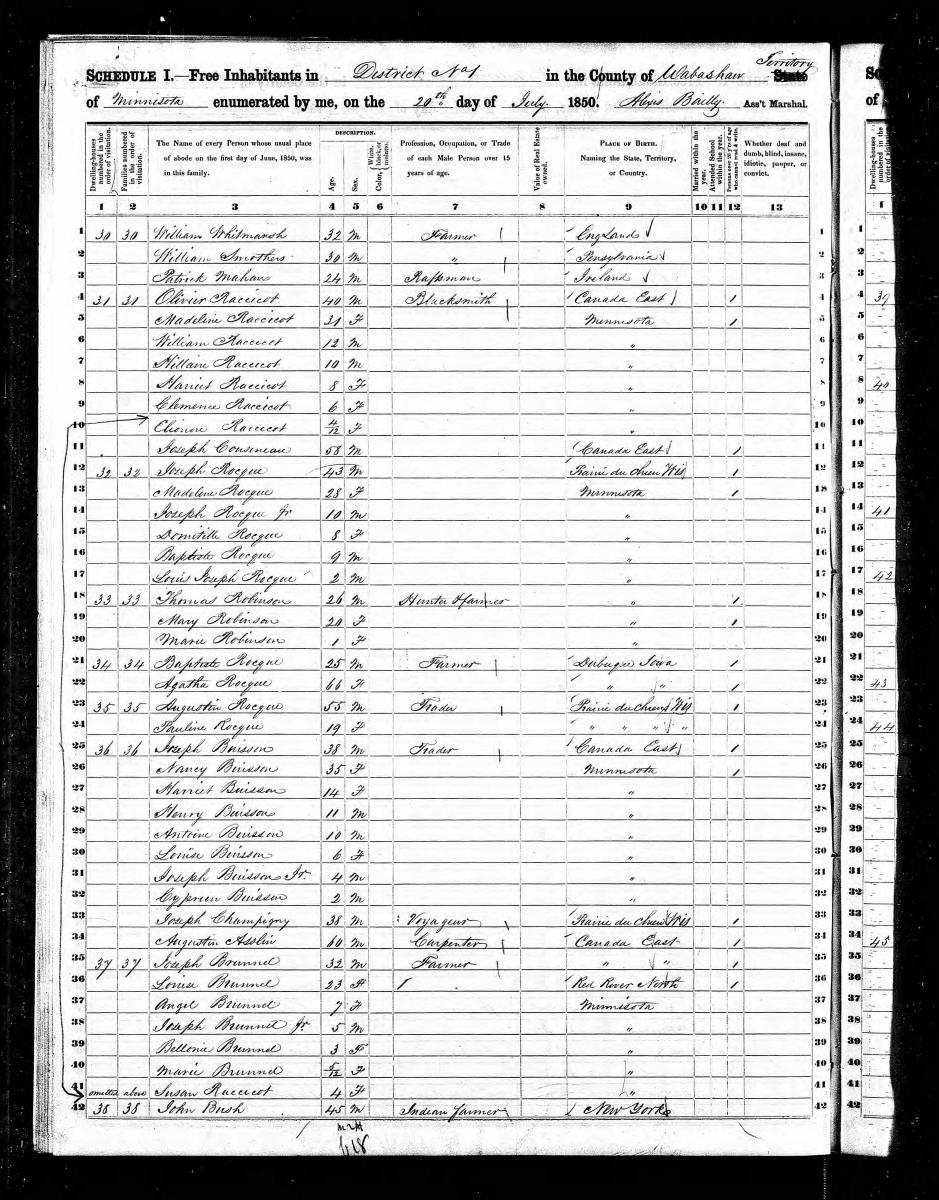 SCHEDULE I.—Free Inhabitants in District No 1 in the County of Wabashaw Territory State
of Minnisota enumerated by me, on the 20th day of July 1850. Alexis Bailly Ass't Marshal.
Dwelling-houses numbered in the order of visitation.
Families numbered in the order of visitation.
The Name of every Person whose usual place of abode on the first day of June, 1850, was in this family.
DESCRIPTION.
Age.
Sex.
Color, White, black, or mulatto.
Profession, Occupation, or Trade of each Male Person over 15 years of age.
Value of Real Estate owned.
PLACE OF BIRTH. Naming the State, Territory, or Country.
Married within the year.
Attended School within the year.
Persons over 20 y'rs of age who cannot read & write.
Whether deaf and dumb, blind, insane, idiotic, pauper, or convict.
1 2 3 4 5 6 7 8 9 10 11 12 13
1 30 30 William Whitmarsh 32 M Farmer England 1
2 William Smothers 30 M " Pensylvania 2
3 Patrick Mahan 24 M Raftsman Ireland 3
4 31 31 Olivier Raccicot 40 M Blacksmith Canada East 1 4
5 Madeline Raccicot 31 F Minnisota 1 5
6 William Raccicot 12 M " 6
7 Hillaire Raccicot 10 M " 7
8 Harriet Raccicot 8 F " 8
9 Clemence Raccicot 6 F " 9
10 Elionore Raccicot 4/12 F " 10
11 Joseph Cousineau 58 M Canada East 1 11
12 32 32 Joseph Rocque 43 M Prairie du Chien Wis 1 12
13 Madeline Rocque 28 F Minnisota 1 13
14 Joseph Rocque Jr 10 M " 14
15 Domitille Rocque 8 F " 15
16 Baptiste Rocque 9 M " 16
17 Louis Joseph Rocque 2 M " 17
18 33 33 Thomas Robinson 26 M Hunter & farmer " 1 18
19 Mary Robinson 20 F " 1 19
20 Marie Robinson 1 F " 20
21 34 34 Baptiste Rocque 25 M Farmer Dubuque Iowa 1 21
22 Agatha Rocque 66 F " " 1 22
23 35 35 Augustin Rocque 55 M Trader Prairie du Chien Wis 1 23
24 Pauline Rocque 19 F " " " " 24
25 36 36 Joseph Buisson 38 M Trader Canada East 1 25
26 Nancy Buisson 35 F Minnisota 1 26
27 Harriet Buisson 14 F " 27
28 Henry Buisson 11 M " 28
29 Antoine Buisson 10 M " 29
30 Louise Buisson 6 F " 30
31 Joseph Buisson Jr. 4 M " 31
32 Cyprien Buisson 2 M " 32
33 Joseph Champigny 38 M Voyageur Prairie du Chien Wis 1 33
34 Augustin Asslin 60 M Carpenter Canada East 1 34
35 37 37 Joseph Brunnel 32 M Farmer " " 1 35
36 Louise Brunnel 23 F Red River North 1 36
37 Angel Brunnel 7 F Minnisota 37
38 Joseph Brunnel Jr 5 M " 38
39 Bellonie Brunnel 3 F " 39
40 Marie Brunnel F " 40
41 omitted above Susan Raccicot 4 F " 41
42 38 38 John Bush 45 M Indian farmer New York 42
618
39
40
41
42
43
44
45